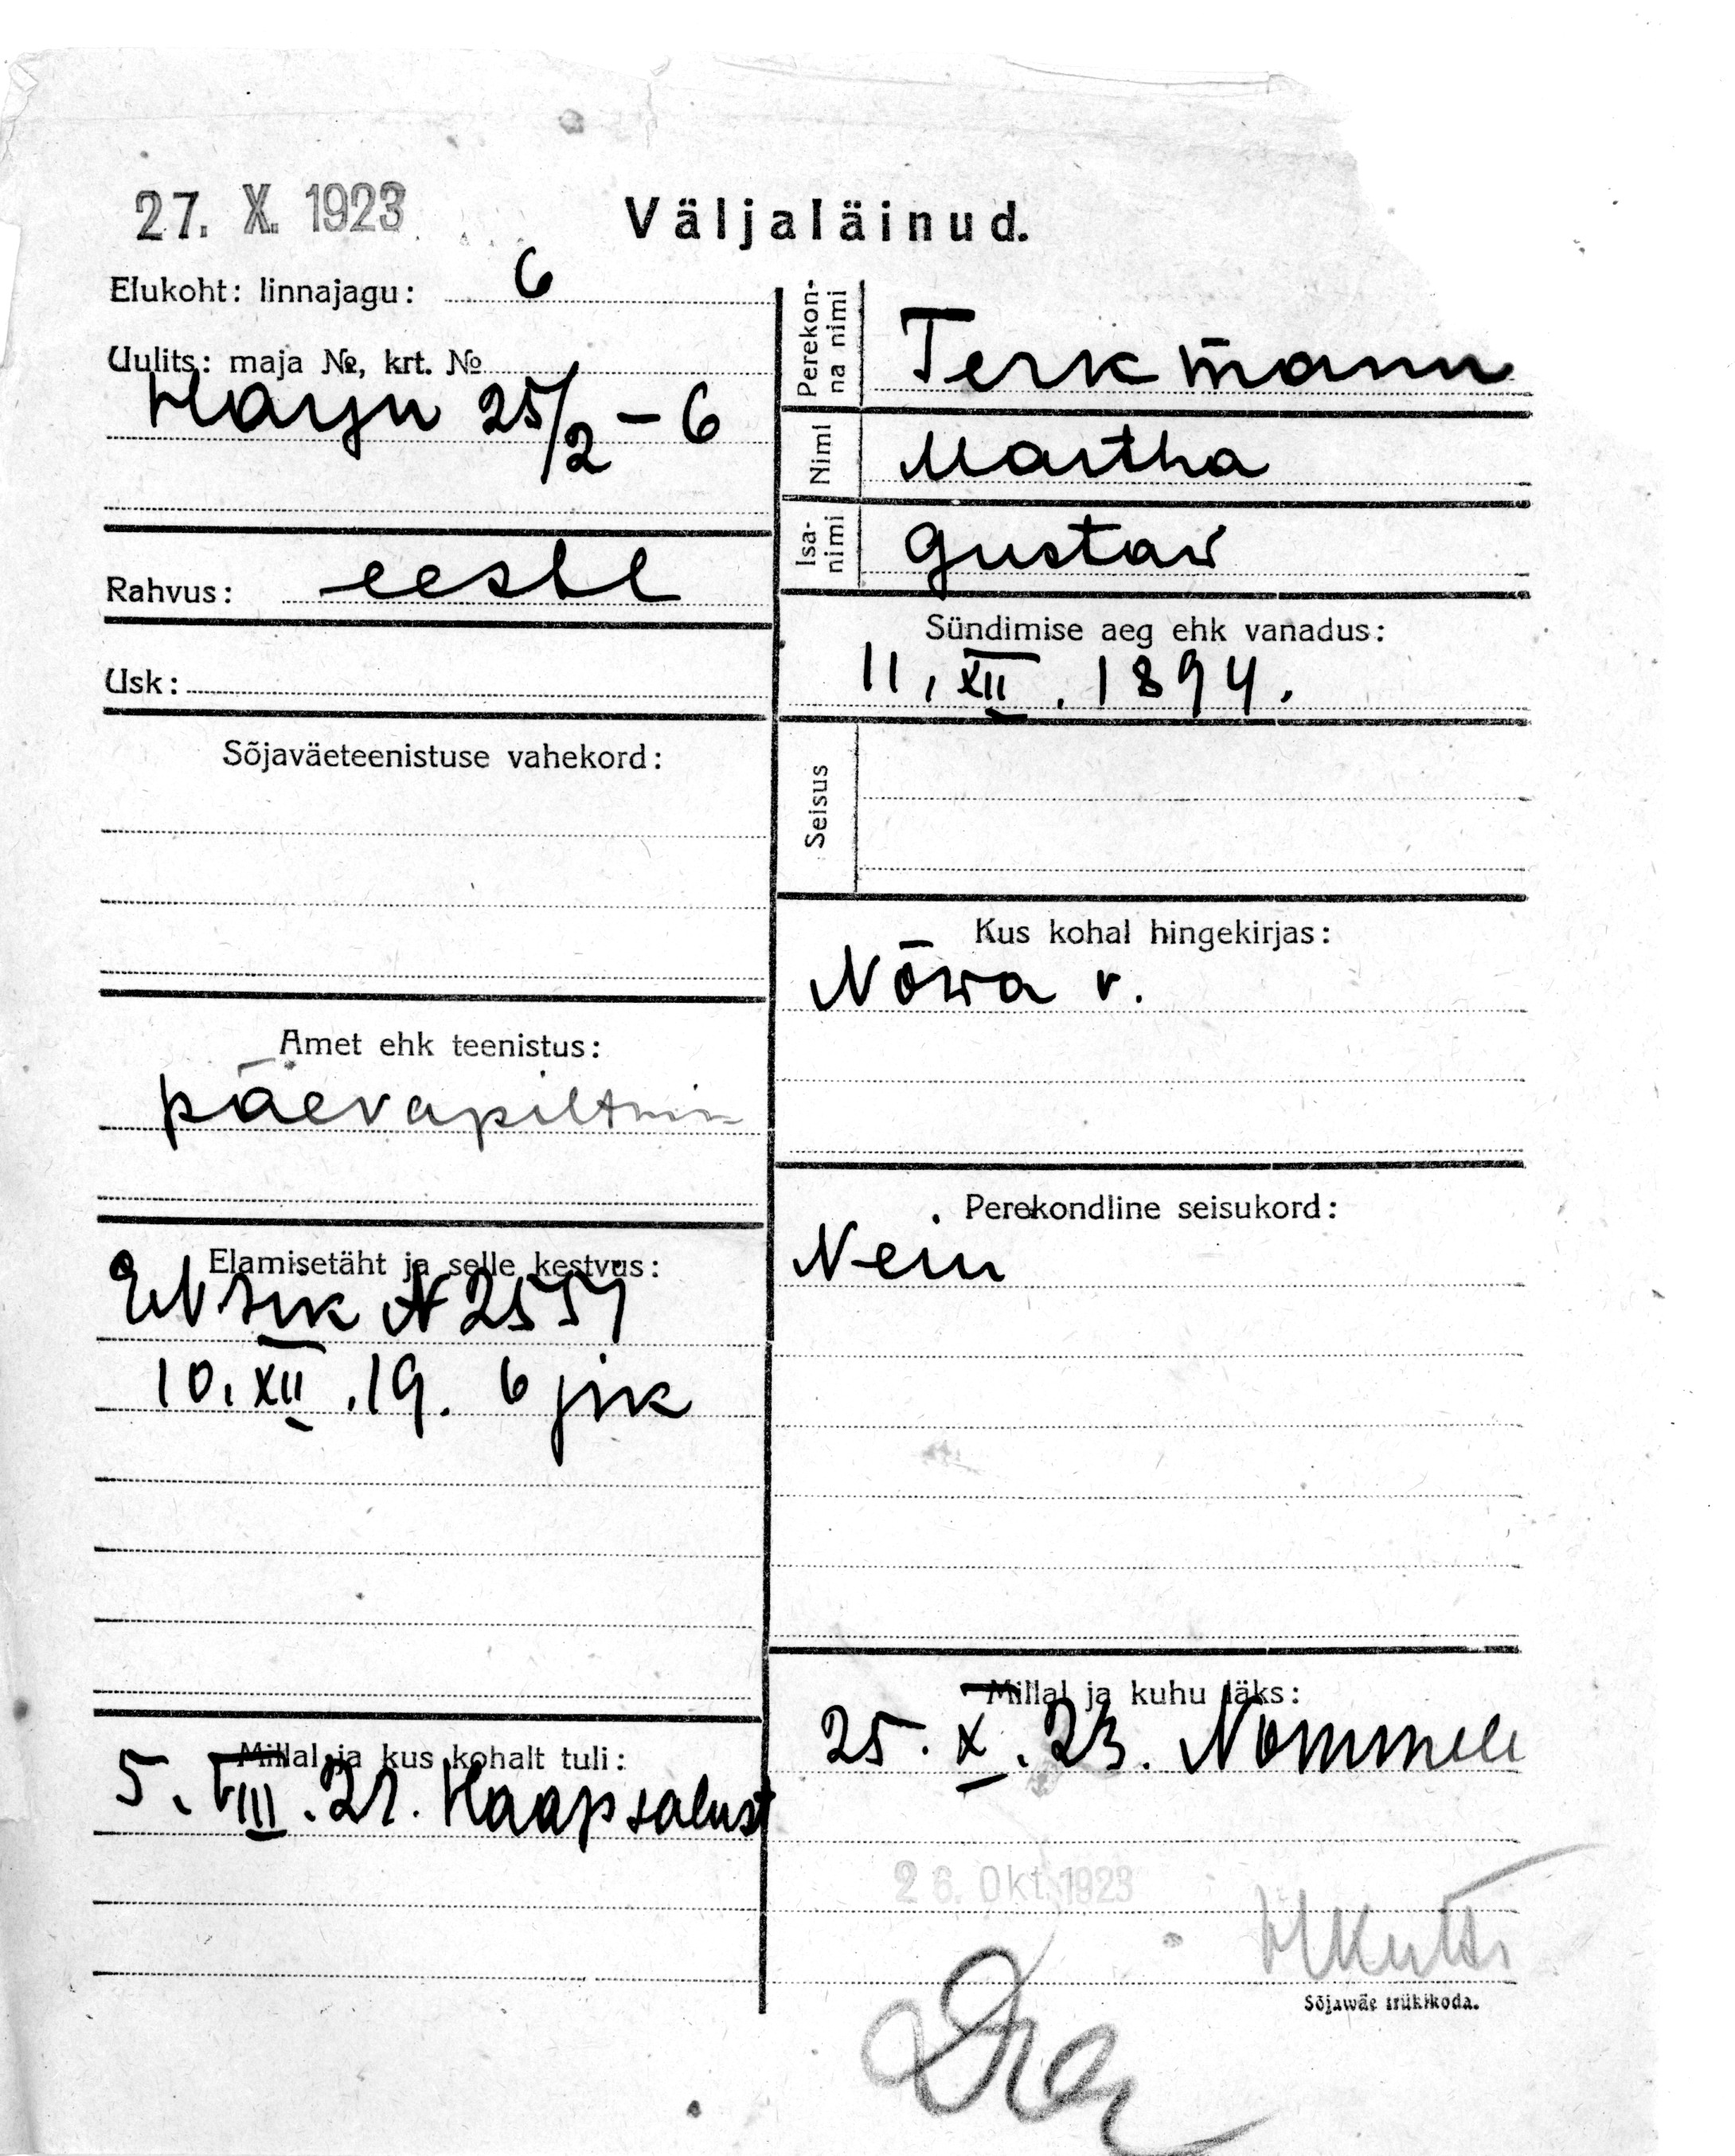 27. X. 1923
Väljaläinud.
Elukoht: linnajagu: 6
Uulits: maja №, krt. №
Harju 25/2 – 6
Rahvus: eesti
Usk:
Sõjaväeteenistuse vahekord:
Amet ehk teenistus:
päevapiltnik
Elamisetäht ja selle kestvus:
N 2557
10. XII. 19. 6 jsk
Millal ja kus kohalt tuli:
5. VIII. 21. Haapsalust
Perekonna nimi
Terkmann
Nimi
Martha
Isanimi
Gustav
Sündimise aeg ehk vanadus:
11. XII. 1894.
Seisus
Kus kohal hingekirjas:
Nõwa v.
Perekondline seisukord:
Neiu
Millal ja kuhu läks:
25. X. 23. Nõmmele
26. Okt. 1923
Sõjawäe trükikoda.